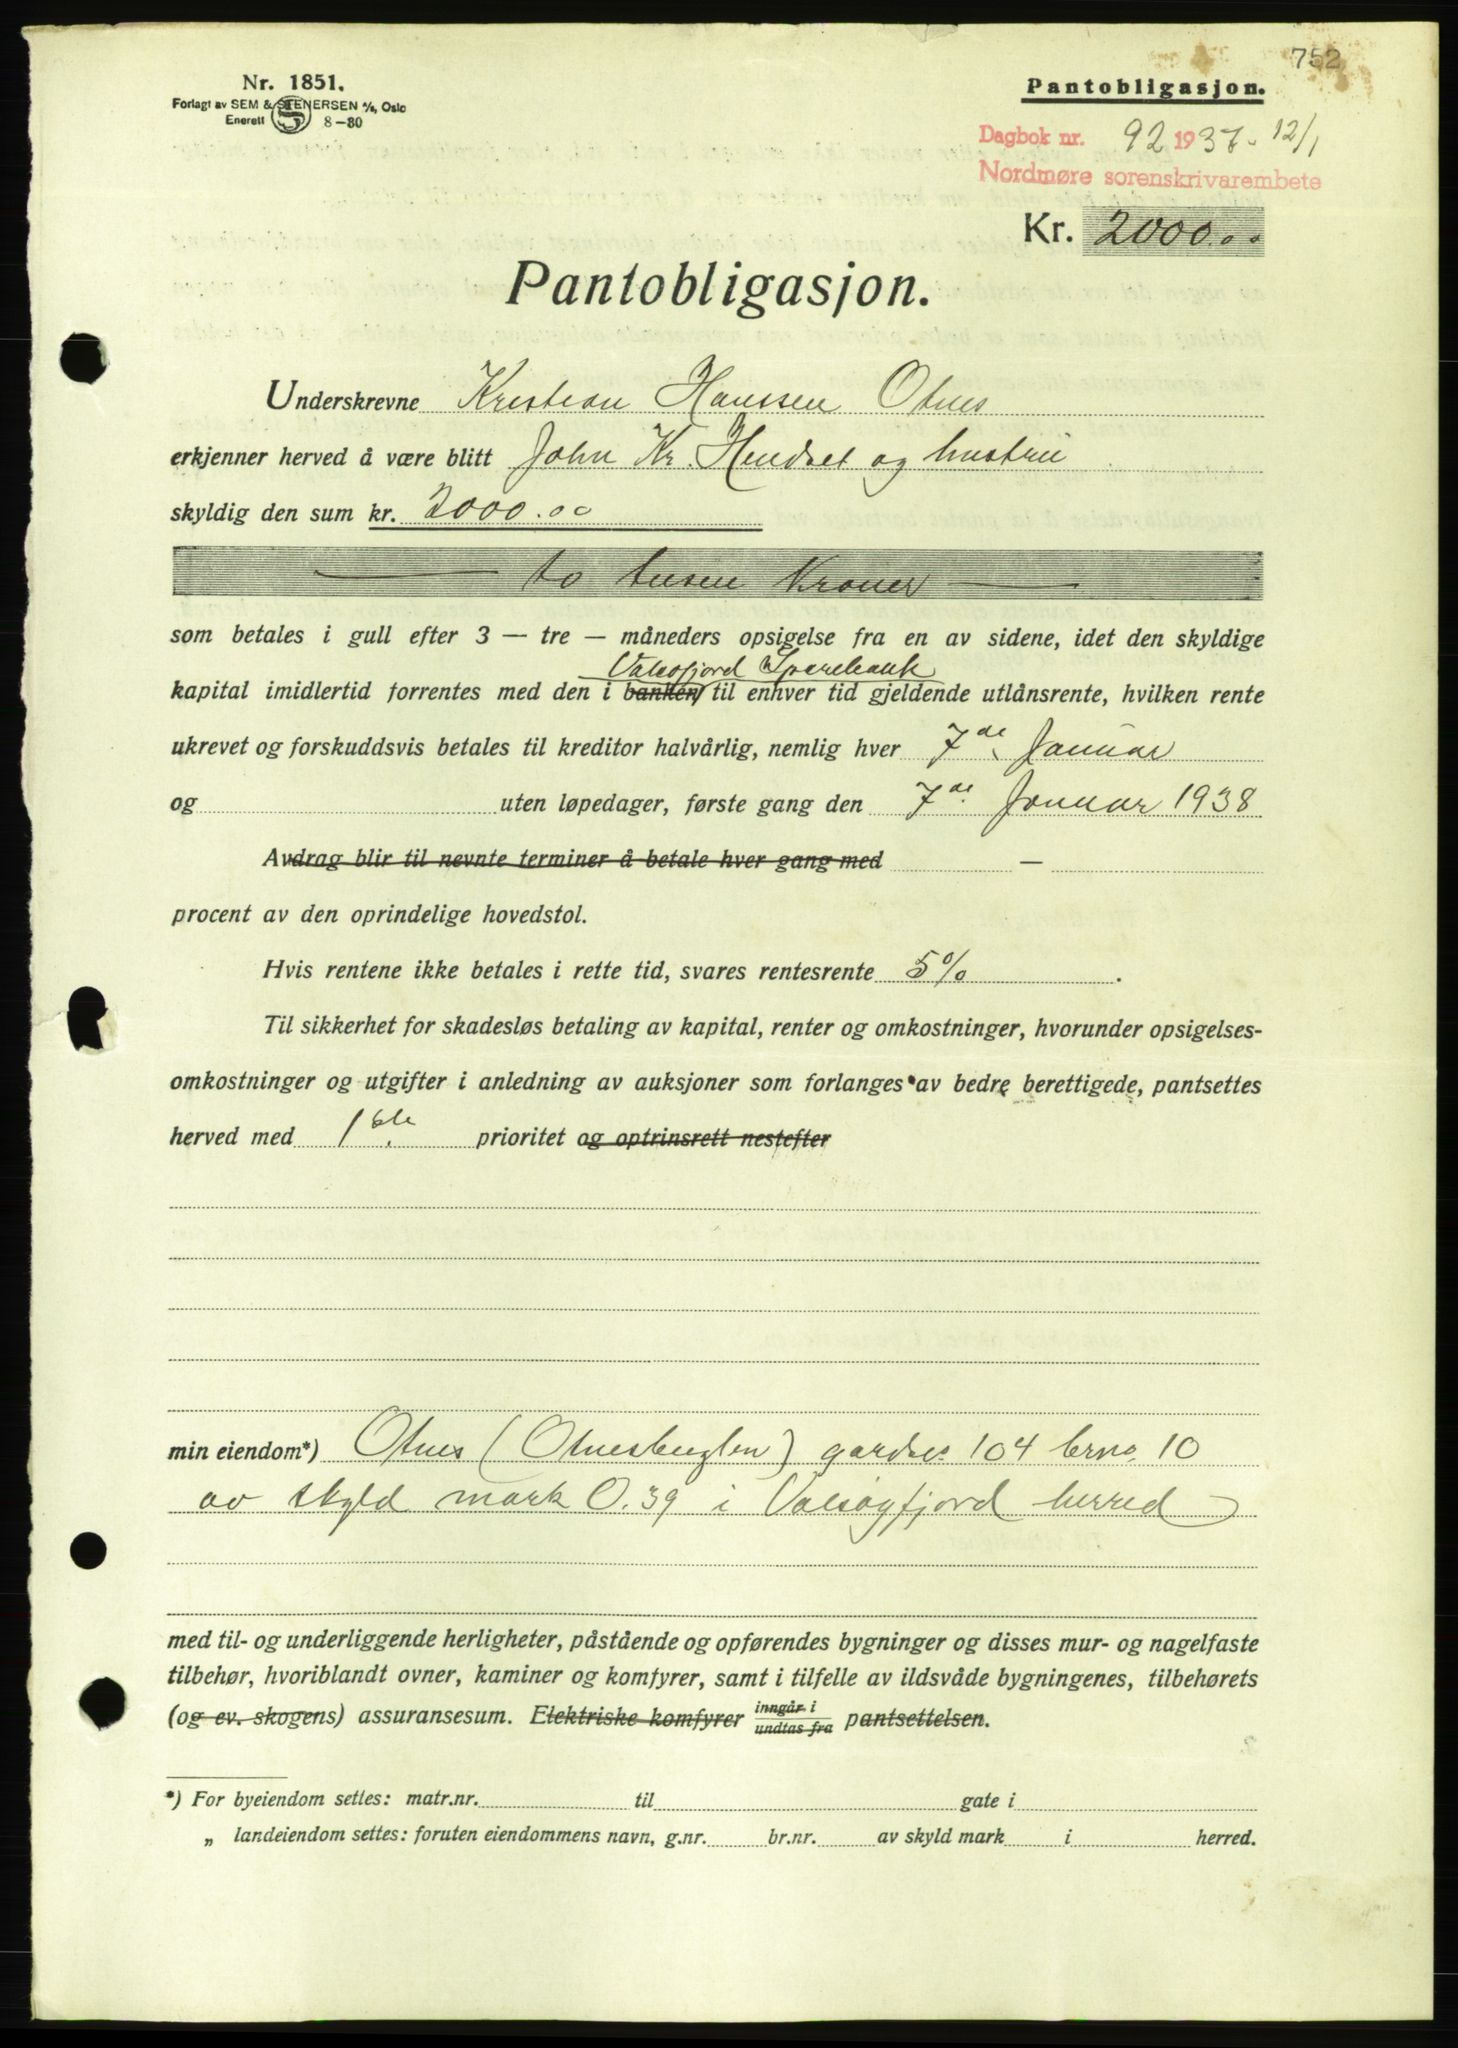 752
Nr. 1851.
Forlagt av SEM & STENERSEN A/S, Oslo
Enerett S 8-30
Pantobligasjon.
Dagbok nr. 92 1937 - 12/1
Nordmøre sorenskrivarembete
Kr. 2000.00
Pantobligasjon.
Underskrevne Kristian Hanssen Otnes
erkjenner herved å være blitt John Kr. Hendset og hustru
skyldig den sum kr. 2000.00
to tusen Kroner
som betales i gull efter 3 — tre — måneders opsigelse fra en av sidene, idet den skyldige
Valsøfjord Sparebank
kapital imidlertid forrentes med den i banken til enhver tid gjeldende utlånsrente, hvilken rente
ukrevet og forskuddsvis betales til kreditor halvårlig, nemlig hver 7de Januar
og uten løpedager, første gang den 7de Januar 1938
Avdrag blir til nevnte terminer å betale hver gang med —
procent av den oprindelige hovedstol.
Hvis rentene ikke betales i rette tid, svares rentesrente 5%.
Til sikkerhet for skadesløs betaling av kapital, renter og omkostninger, hvorunder opsigelses-
omkostninger og utgifter i anledning av auksjoner som forlanges av bedre berettigede, pantsettes
herved med 1ste prioritet og optrinsrett nestefter
min eiendom*) Otnes (Otnesbugten) gardsn. 104 brno. 10
av skyld mark 0.39 i Valsøyfjord herred
med til- og underliggende herligheter, påstående og opførendes bygninger og disses mur- og nagelfaste
tilbehør, hvoriblandt ovner, kaminer og komfyrer, samt i tilfelle av ildsvåde bygningenes, tilbehørets
(og ev. skogens) assuransesum. Elektriske komfyrer inngår i / undtas fra pantsettelsen.
*) For byeiendom settes: matr.nr. til gate i
„ landeiendom settes: foruten eiendommens navn, g.nr. br.nr. av skyld mark i herred.